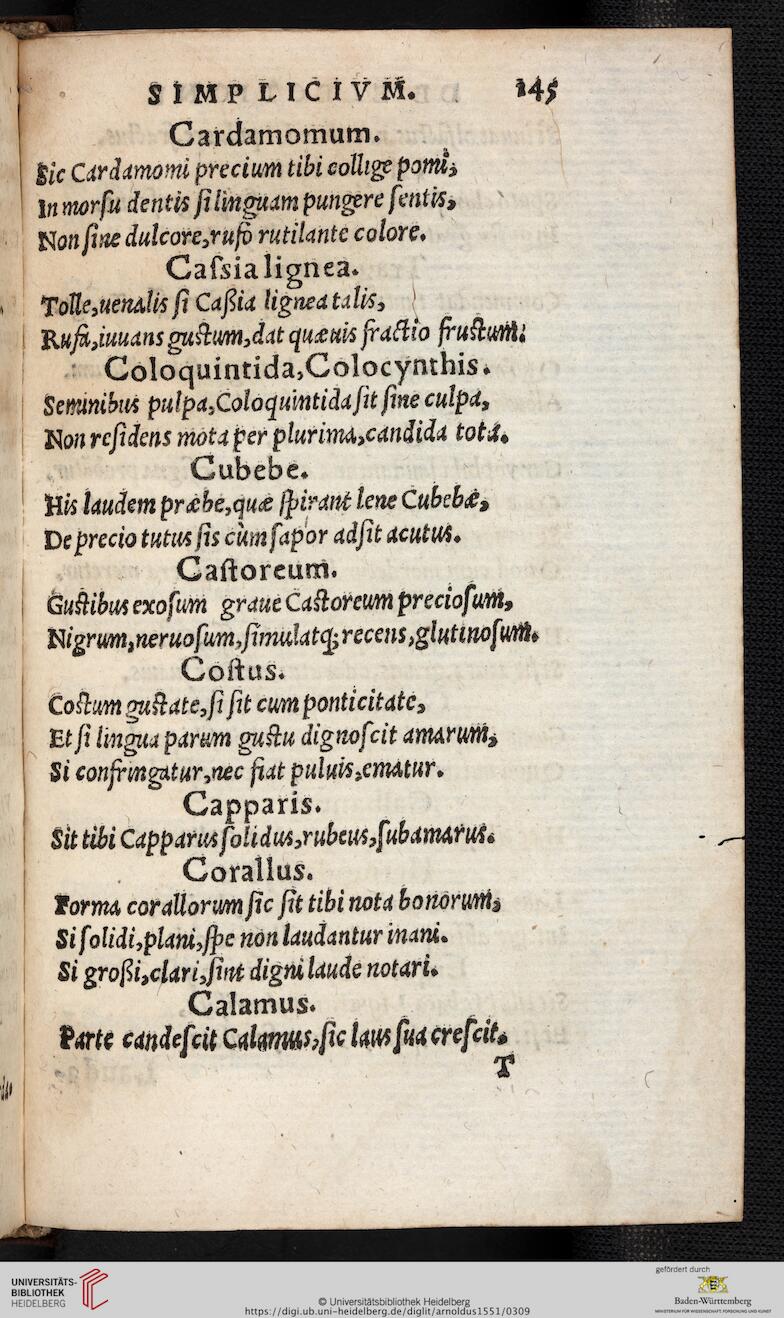 SIMPLICIVM. 145
Cardamomum.
Sic Cardamomi precium tibi collige pomi,
In morſu dentis ſi linguam pungere ſentis,
Non ſine dulcore, rufo rutilante colore.
Caſsia lignea.
Tolle, uenalis ſi Caßia lignea talis,
Rufa, iuuans guſtum, dat quæuis fractio fruſtum.
Coloquintida, Colocynthis.
Seminibus pulpa, Coloquintida ſit ſine culpa,
Non reſidens mota per plurima, candida tota.
Cubebe.
His laudem præbe, quæ ſpirant lene Cubebæ,
De precio tutus ſis cùm ſapor adſit acutus.
Caſtoreum.
Guſtibus exoſum graue Caſtoreum precioſum,
Nigrum, neruoſum, ſimulatq; recens, glutinoſum.
Coſtus.
Coſtum guſtate, ſi ſit cum ponticitate,
Et ſi lingua parum guſtu dignoſcit amarum,
Si confringatur, nec fiat puluis, ematur.
Capparis.
Sit tibi Capparus ſolidus, rubeus, ſubamarus.
Corallus.
Forma corallorum ſic ſit tibi nota bonorum,
Si ſolidi, plani, ſpe non laudantur inani.
Si großi, clari, ſint digni laude notari.
Calamus.
Parte candeſcit Calamus, ſic laus ſua creſcit.
T
UNIVERSITÄTS-
BIBLIOTHEK
HEIDELBERG
© Universitätsbibliothek Heidelberg
https://digi.ub.uni-heidelberg.de/diglit/arnoldus1551/0309
gefördert durch
Baden-Württemberg
MINISTERIUM FÜR WISSENSCHAFT, FORSCHUNG UND KUNST